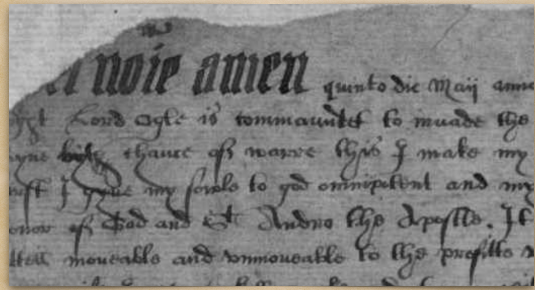 noīe amen quinto die Maij anno
Lord Ogle is commaunded to invade the
chance of warre this I make my
I gyve my sowle to god omnipitent and my
honor of God and St Andro the Apostle. It
moveable and vnmoveable to the profitte